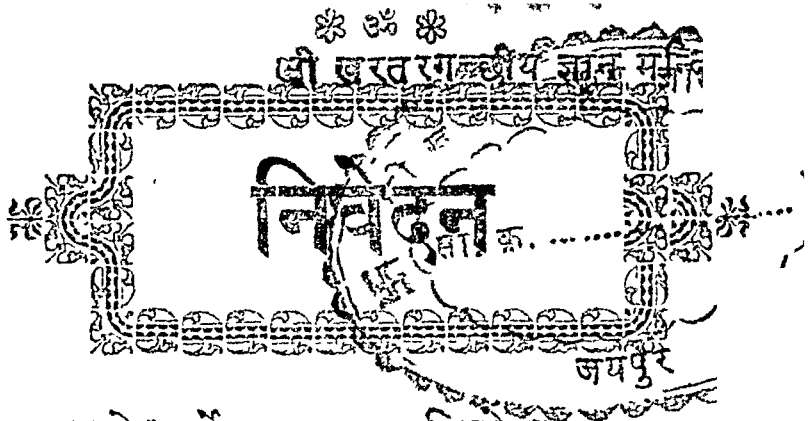 ॐ
श्री खरतरगच्छीय ज्ञान मन्दिर
निवेदन
ता. क.
जयपुर